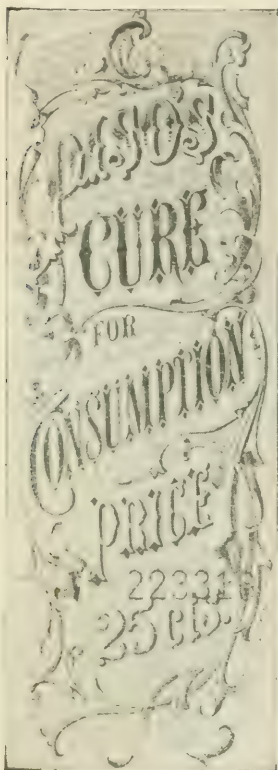 PISO'S
CURE
FOR
CONSUMPTION
PRICE
25 cts.